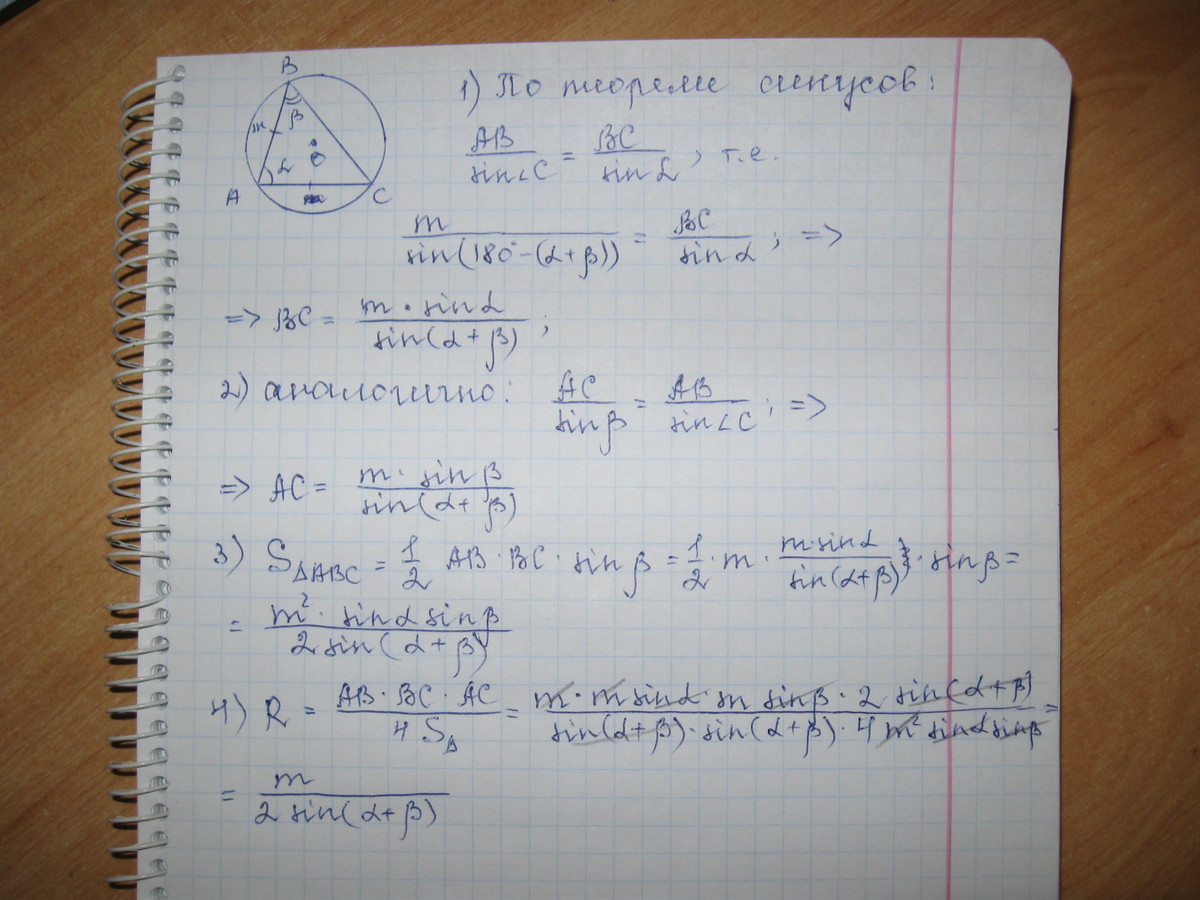 B
m
β
O
α
A
C
1) По теореме синусов:
AB/sin∠C = BC/sin α, т.е.
m/sin(180°-(α+β)) = BC/sin α; =>
=> BC = m · sin α/sin(α+β);
2) аналогично: AC/sin β = AB/sin∠C; =>
=> AC = m · sin β/sin(α+β)
3) S△ABC = 1/2 AB · BC · sin β = 1/2 · m · m·sin α/sin(α+β) · sin β =
= m² · sin α sin β/2 sin(α+β)
4) R = AB · BC · AC/4 S△ = m · m sin α · m sin β · 2 sin(α+β)/sin(α+β) · sin(α+β) · 4 m² sin α sin β =
= m/2 sin(α+β)